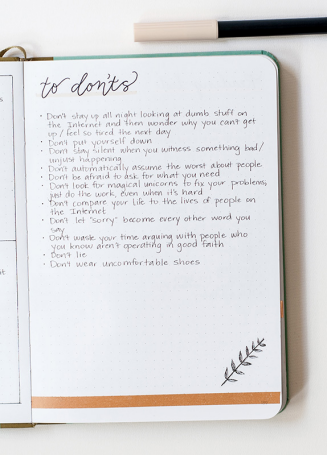 to don'ts
• Don't stay up all night looking at dumb stuff on
the Internet and then wonder why you can't get
up/feel so tired the next day
• Don't put yourself down
• Don't stay silent when you witness something bad/
unjust happening
• Don't automatically assume the worst about people
• Don't be afraid to ask for what you need
• Don't look for magical unicorns to fix your problems,
just do the work, even when it's hard
• Don't compare your life to the lives of people on
the Internet
• Don't let "sorry" become every other word you
say
• Don't waste your time arguing with people who
you know aren't operating in good faith
• Don't lie
• Don't wear uncomfortable shoes